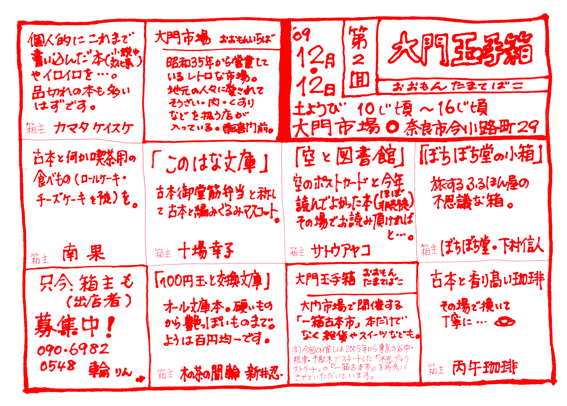 個人的にこれまで
書い込んだ本(小説や
やイロイロを…。
品切れの本も多い
はずです。
箱主 カマタケイスケ
大門市場 おおもんいちば
昭和35年から営業して
いるレトロな市場。
地元の人々に愛されて
そうざい・肉・くすり
などを扱う店が
入っている。転害門前。
'09
12月
12日
第2回
大門玉手箱
おおもんたまてばこ
土ようび 10じ頃〜16じ頃
大門市場 奈良市今小路町29
古本と何か喫茶用の
食べもの(ロールケーキ・
チーズケーキを予定)を。
箱主 南果
「このはな文庫」
古本御堂筋弁当と称し
て古本と編みぐるみマスコット。
箱主 十場幸子
「空と図書館」
空のポストカードと今年
読んでよかった本(ほぼ
その場でお読み頂ければ
と…。
箱主 サトウアヤコ
「ぼちぼち堂の小箱」
旅するふるほん屋の
不思議な箱。
箱主 ぼちぼち堂・下村信人
只今、箱主も
(出店者)
募集中!
090-6982
0548 輪りん
「100円玉と交換文庫」
オール文庫本。硬いもの
から艶っぽいものまで。
ようは百円均一です。
箱主 本の茶の間 輪 新井忍
大門玉手箱 おおもん
たまてばこ
大門市場で開催する
「一箱古本市」本だけで
なく雑貨やスイーツなども。
古本と香り高い珈琲
その場で挽いて
丁寧に…
箱主 丙午珈琲